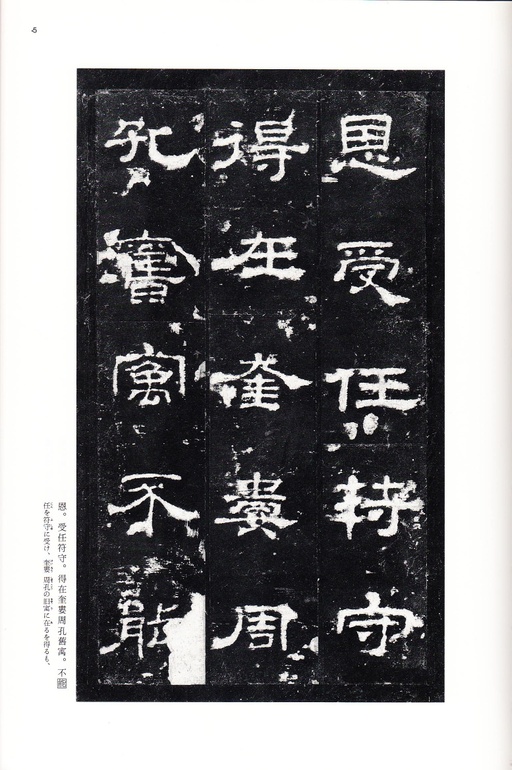 恩受任符守
得在奎婁周
孔舊寓不能
恩。受任符守。得在奎婁周孔舊寓。不
任を符守に受け、奎婁 周孔の旧寓に在るを得るも、